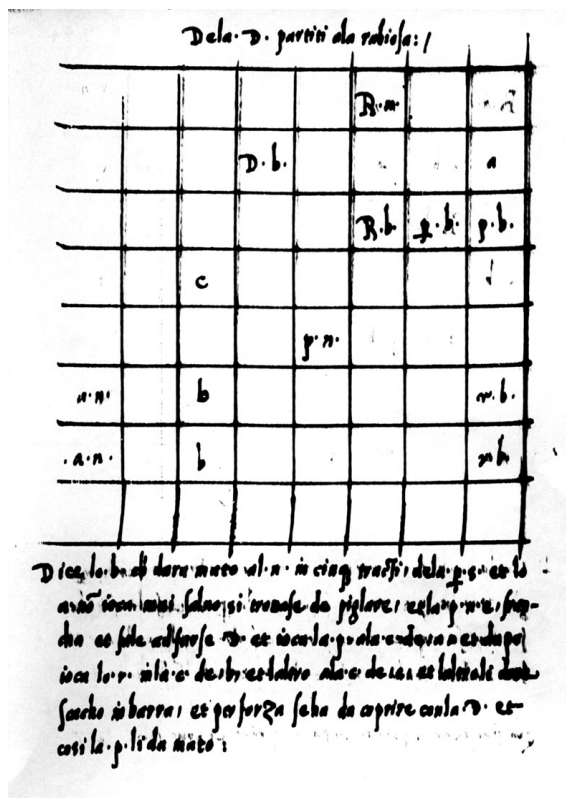 Dela · D · partiti ala rabiosa :/
R · n ·
D · b · a
R · b · p · b · p · b ·
c
p · n ·
a · n · b r · b ·
· a · n · b r · b ·
Dice lo · b · dara mato al · n · in cinq tracti, dela · p · s · et lo
a · nō ioca mai salvo si trovase de pigliare, e la · p · n · e, fran-
cha et sale ad farse D · et ioca la · p · ala et da poi
ioca lo · r · in la · c · de · b, et laltro ala · c · de et
scacho in barra, et per forza se ha da coprire con la · D · et
cosi la · p · li da mato :